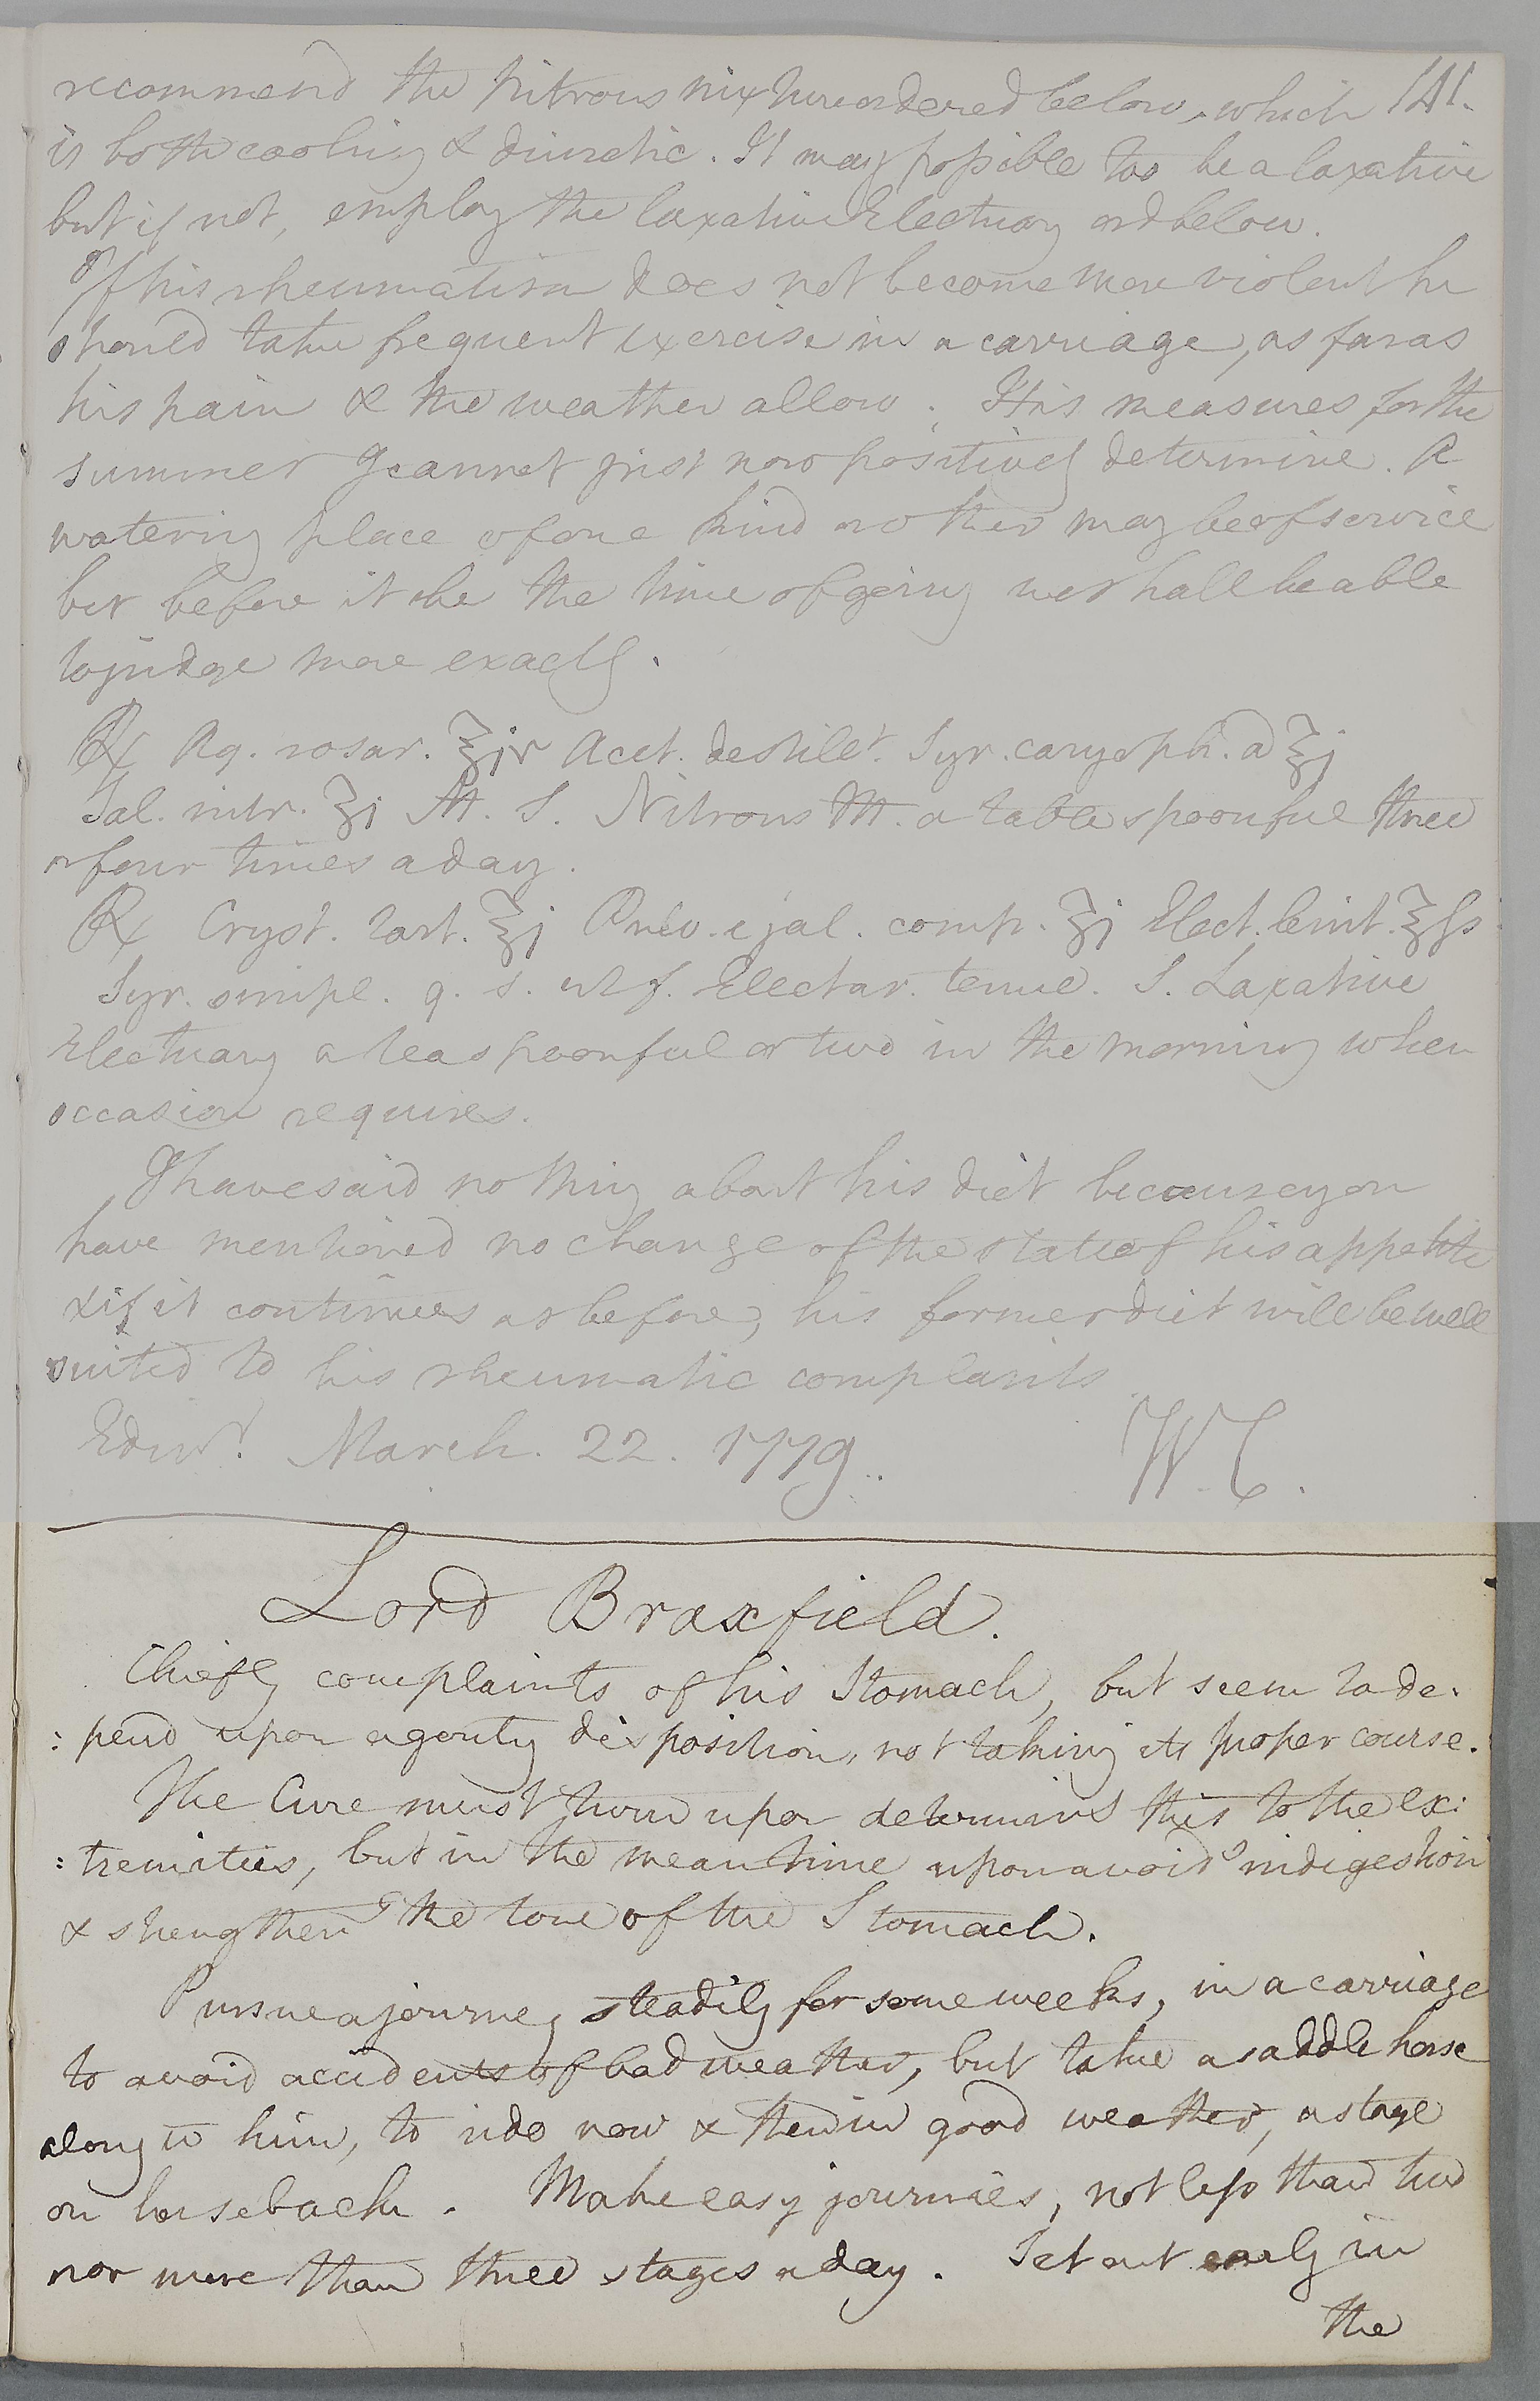 recommend the Nitrous mixture ordered below, which 141.
is both cooling & diuretic. It may possible too be a laxative
but if not, employ the laxative Electuary ord below.
If his rheumatism does not become more violent he
should take frequent exercise in a carriage, as far as
his pain & the weather allow. His measures for the
summer I cannot just now positively determine. A
watering place of one kind or other may be of service
but before it be the time of going we shall be able
to judge more exactly.
℞ Aq. rosar. ℥iv Acet. destillt. Syr. caryoph. a ℥j
Sal. nitr. ʒj M. S. Nitrous M. a table spoonful three
or four times a day.
℞ Cryst. tart. ℥j Pulv. e jal. comp. ʒj Elect. lenit. ℥ſs
Syr. simpl. q. s. ut f. Electar. tenue. S. Laxative
Electuary a teaspoonful or two in the morning when
occasion requires.
I have said nothing about his diet because you
have mentioned no change of the state of his appetite
& if it continues as before, his former diet will be well
suited to his rheumatic complaints
Edinr. March. 22. 1779. W. C.
Lord Braxfield.
Chiefly complaints of his Stomach, but seem to de:
: pend upon a gouty disposition, not taking its proper course.
The Cure must turn upon determing this to the ex:
: tremities, but in the mean time upon avoidg indigestion
& strengtheng the tone of the Stomach.
Pursue a journey steadily for some weeks, in a carriage
to avoid accidents of bad weather, but take a saddle horse
along wt him, to ride now & then in good weather, a stage
on horseback. Make easy journies, not leſs than two
nor more than three stages a day. Set out early in
the